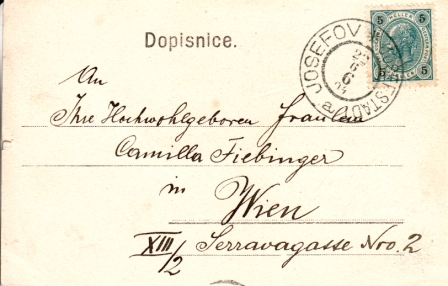 Dopisnice.
JOSEFOV JOSEFSTADT
5 HELLER 5
An
Ihre Hochwohlgeboren Fräulein
Camilla Fiebinger
in
Wien
XIII/2 Serravagasse Nro. 2